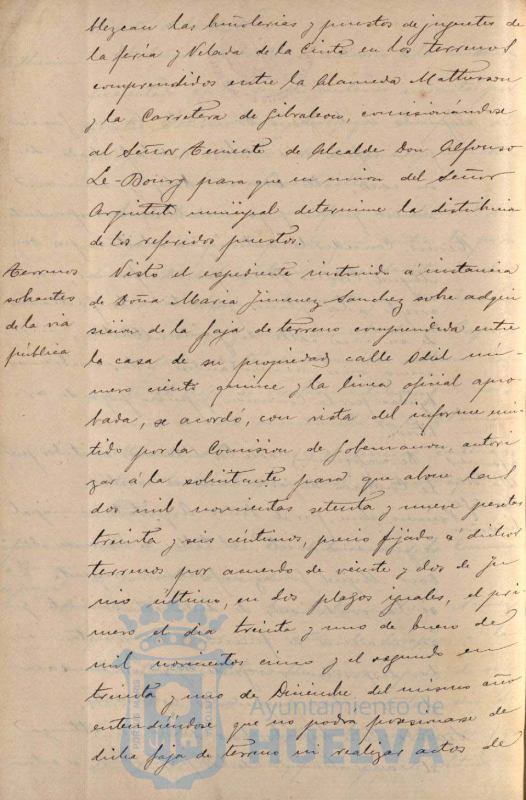 blezcan las buñolerias y puestos de juguetes de
la feria y Velada de la Cinta en los terrenos
comprendidos entre la Alameda Mattherson
y la Carretera de Gibraleon, comisionándose
al Señor Teniente de Alcalde Don Alfonso
Le-Bourg para que en union del Señor
Arquitecto municipal determine la distribucion
de los referidos puestos.
Terrenos
sobrantes
de la via
pública
Visto el expediente instruido á instancia
de Doña Maria Jimenez Sanchez sobre adqui
sicion de la faja de terreno comprendida entre
la casa de su propiedad calle Odiel nú-
mero ciento quince y la linea oficial apro-
bada, se acordó, con vista del informe emi-
tido por la Comision de Gobernacion, autori-
zar á la solicitante para que abone las
dos mil novecientas setenta y nueve pesetas
treinta y seis céntimos, precio fijado á dichos
terrenos por acuerdo de veinte y dos de Ju-
nio último, en dos plazos iguales, el pri-
mero el dia treinta y uno de Enero de
mil novecientos cinco y el segundo en
treinta y uno de Diciembre del mismo año
entendiéndose que no podrá posesionarse de
dicha faja de terreno ni realizar actos de
Ayuntamiento de
HUELVA